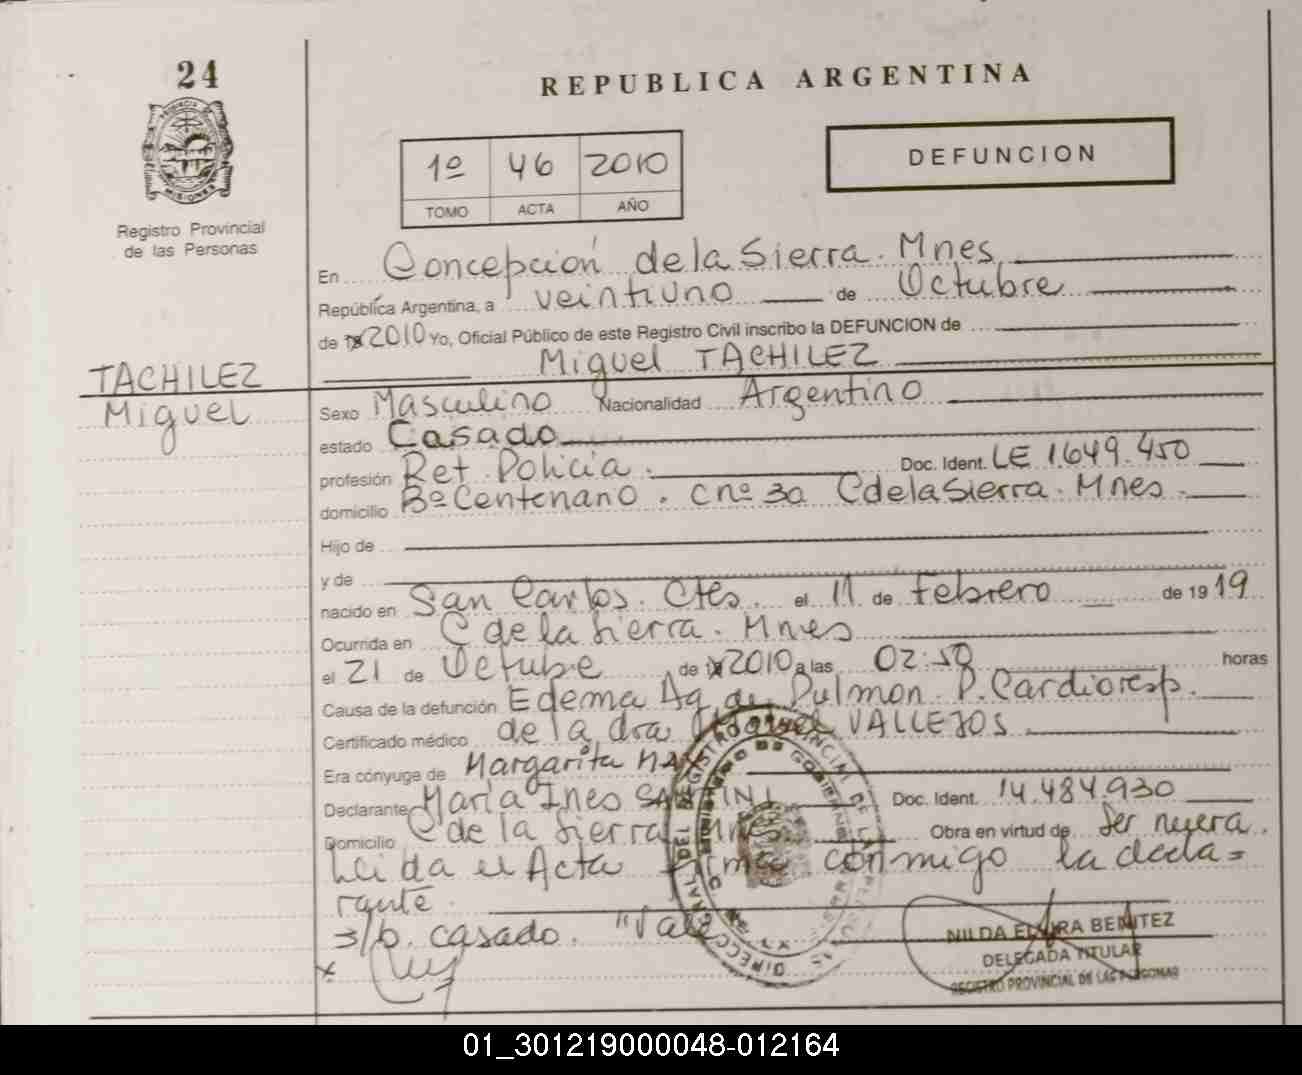 24
REPUBLICA ARGENTINA
DEFUNCION
1º 46 2010
TOMO ACTA AÑO
PROVINCIA DE MISIONES
Registro Provincial
de las Personas
En Concepción de la Sierra. Mnes
República Argentina, a veintiuno de Octubre
de 2010 Yo, Oficial Público de este Registro Civil inscribo la DEFUNCION de
Miguel TACHILEZ
TACHILEZ
Miguel
Sexo Masculino Nacionalidad Argentino
estado Casado
profesión Ret. Policia. Doc. Ident. LE 1.649.450
domicilio Bº Centenario. C nº 30 C de la Sierra. Mnes.
Hijo de
y de
nacido en San Carlos. Ctes. el 11 de Febrero de 1919
Ocurrida en C de la Sierra. Mnes
el 21 de Octubre de 2010 a las 02:50 horas
Causa de la defunción Edema Ag. de Pulmon. P. Cardioresp.
Certificado médico de la dra VALLEJOS
Era cónyuge de Margarita
Declarante María Ines Doc. Ident. 14.484.930
Domicilio C de la Sierra Mnes Obra en virtud de Ser nuera.
Leida el Acta firma conmigo la decla=
rante.
s/b. casado. "Vale
NILDA ELVIRA BENITEZ
DELEGADA TITULAR
REGISTRO PROVINCIAL DE LAS PERSONAS
01_301219000048-012164